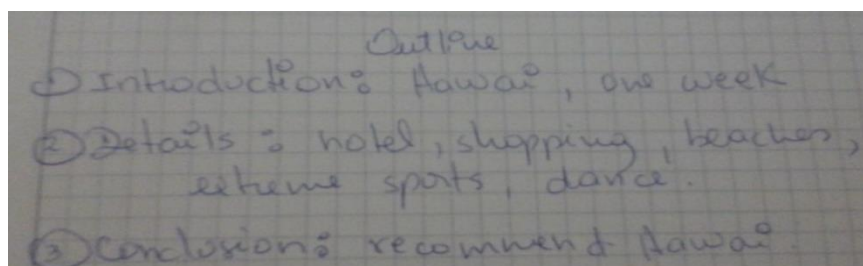 Outline
① Introduction: Hawai, one week
② Details: hotel, shopping, beaches,
extreme sports, dance.
③ Conclusion: recommend Hawai.